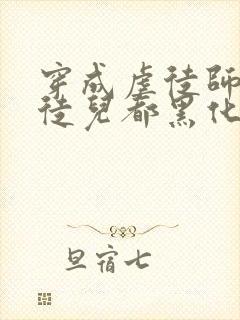 穿成虐徒師
徒兒都黑化
旦宿七